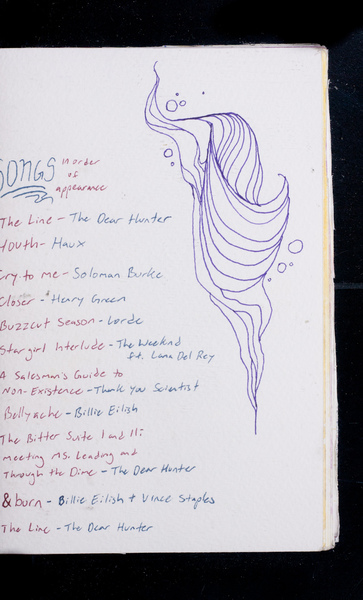 SONGS in order
of
appearance
The Line - The Dear Hunter
Youth - Haux
Cry to me - Soloman Burke
Closer - Henry Green
Buzzcut Season - Lorde
Stargirl Interlude - The Weeknd
ft. Lana Del Rey
A Salesman's Guide to
Non-Existence - Thank You Scientist
Bellyache - Billie Eilish
The Bitter Suite I and II:
meeting Ms. Leading and
Through the Dime - The Dear Hunter
&burn - Billie Eilish + Vince Staples
The Line - The Dear Hunter